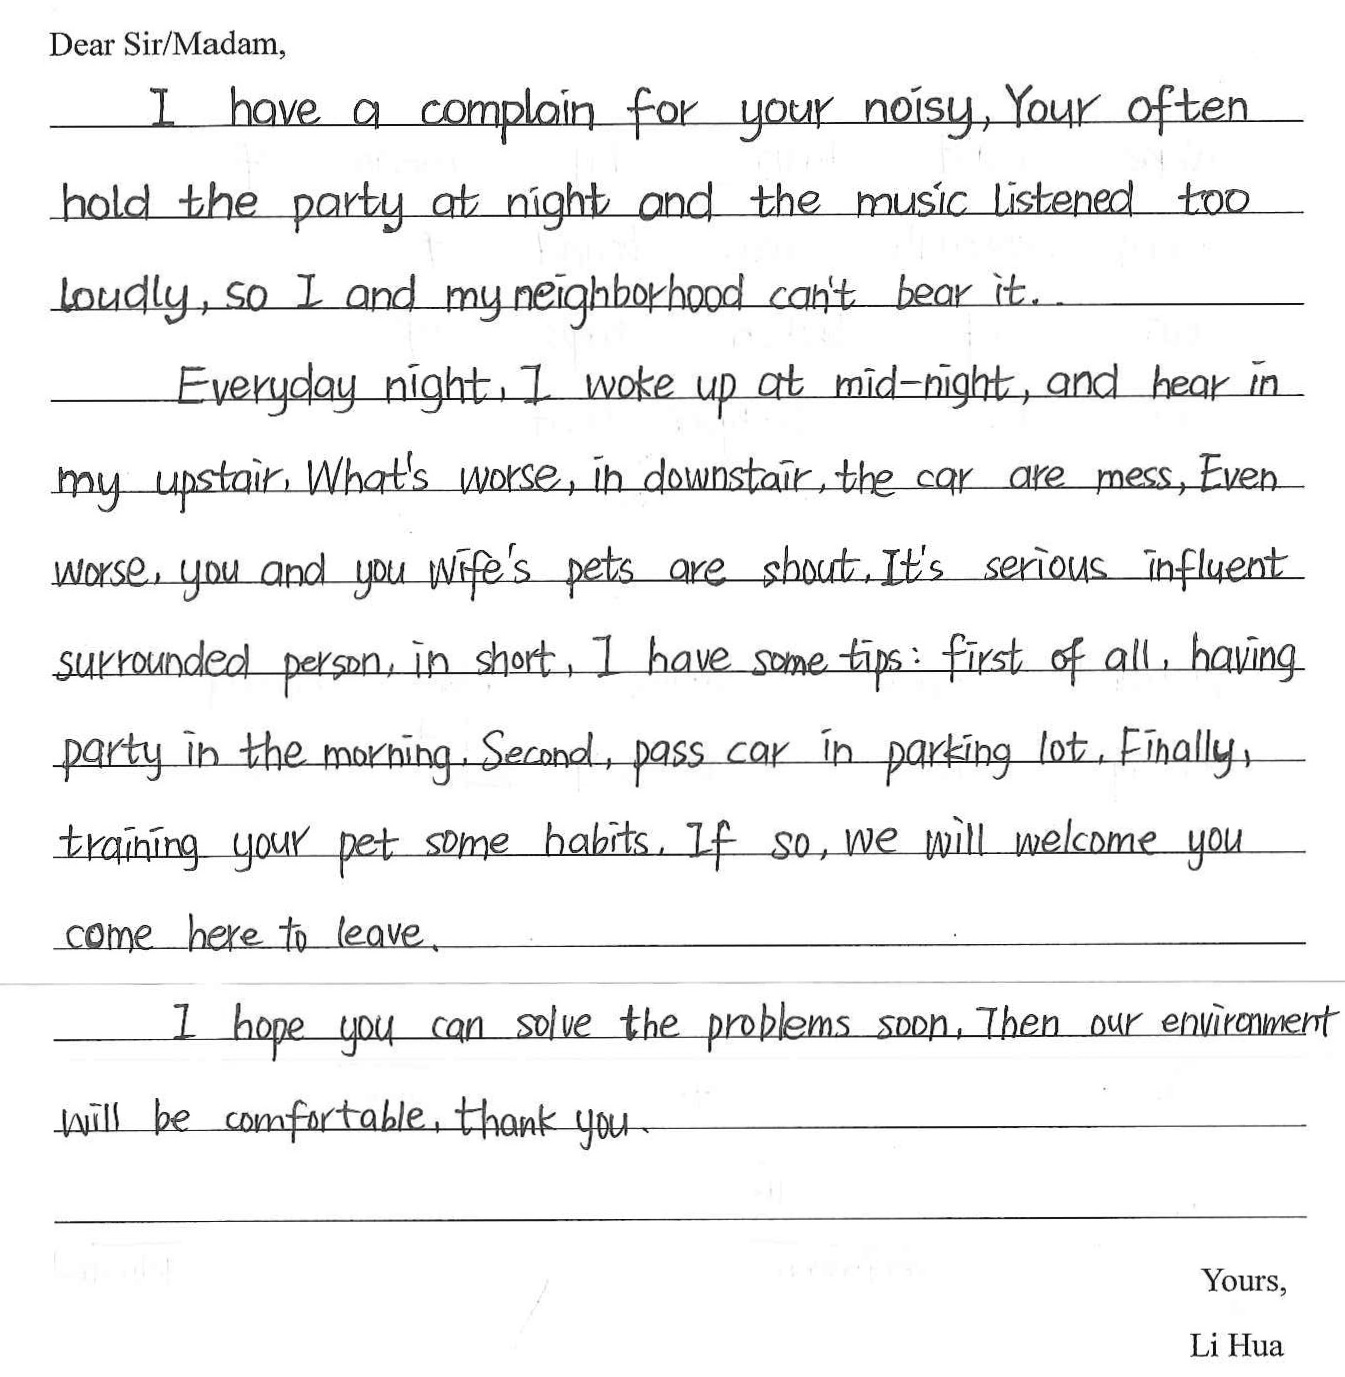 Dear Sir/Madam,
I have a complain for your noisy, Your often
hold the party at night and the music listened too
loudly, so I and my neighborhood can't bear it.
Everyday night, I woke up at mid-night, and hear in
my upstair, What's worse, in downstair, the car are mess, Even
worse, you and you wife's pets are shout. It's serious influent
surrounded person, in short, I have some tips: first of all, having
party in the morning. Second, pass car in parking lot. Finally,
training your pet some habits. If so, we will welcome you
come here to leave.
I hope you can solve the problems soon. Then our environment
will be comfortable, thank you.
Yours,
Li Hua